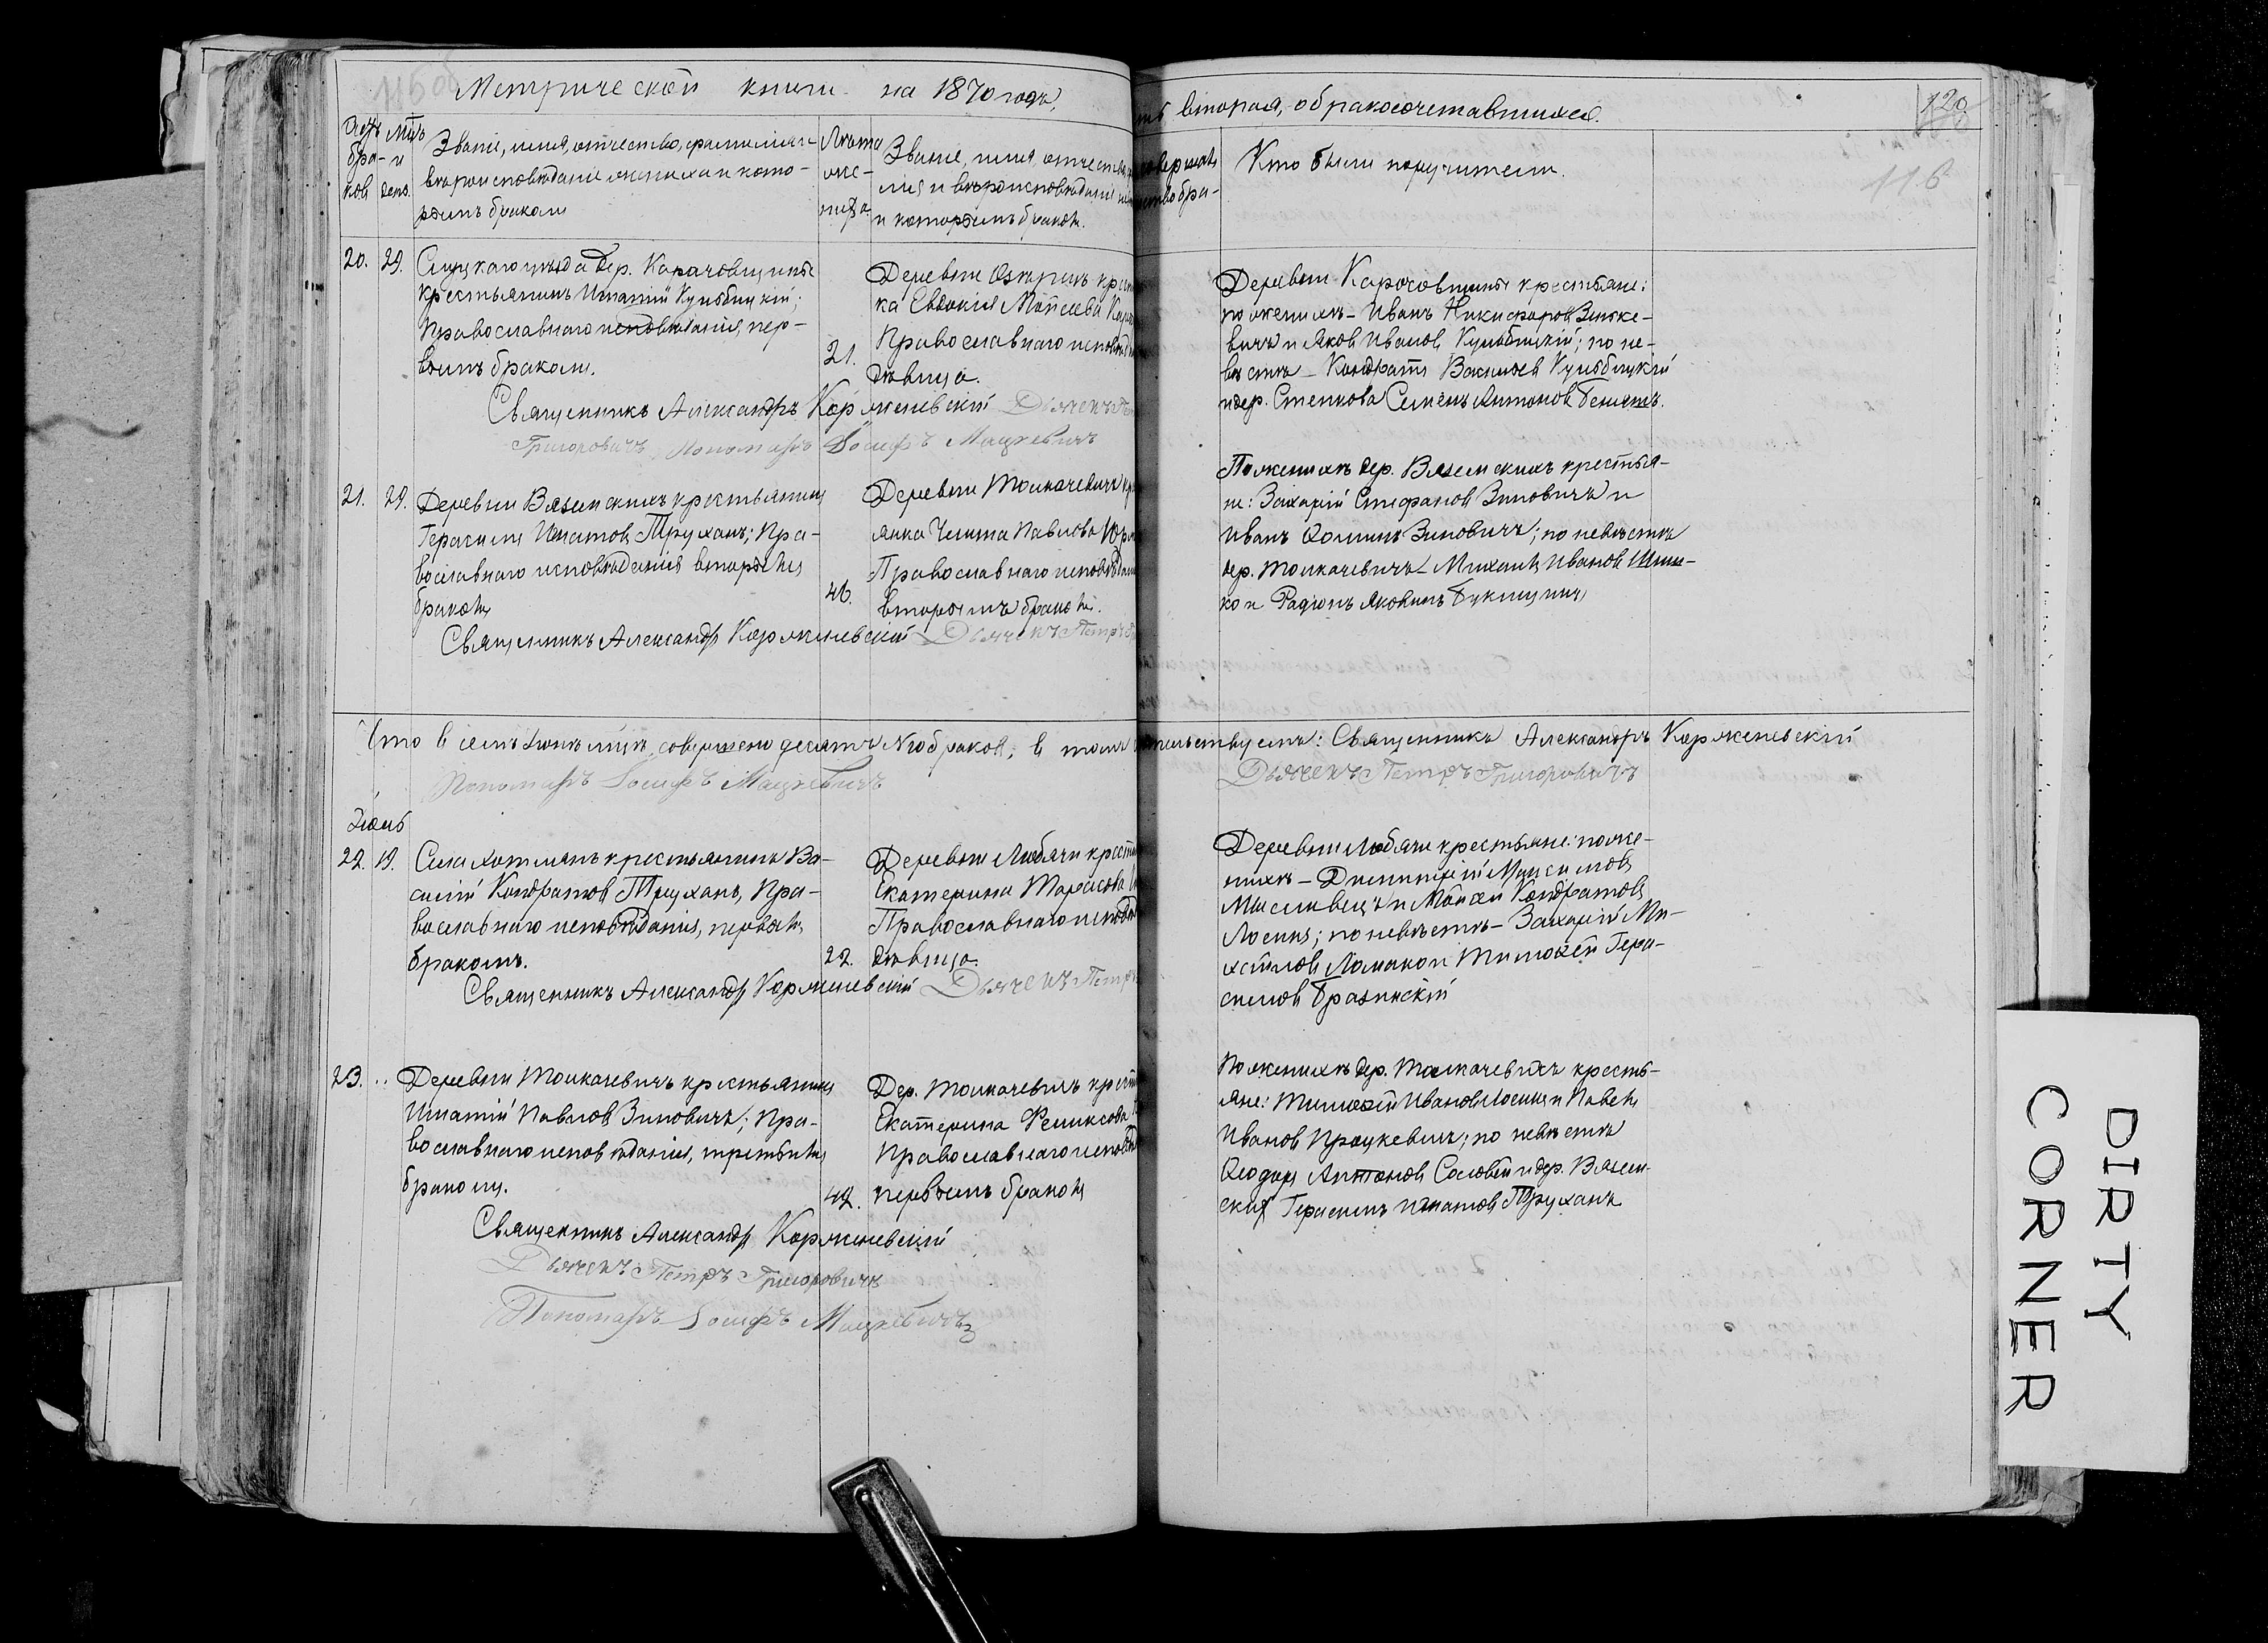 Метрической книги на 1870 годъ,
ть вторая, о бракосочетавшихся.
120
116
Счетъ бра-ков
Мць и день.
Званіе, имя, отчество, фамилія и
вѣроисповѣданіе жениха и кото-
рымъ бракомъ
Лѣта
же-
ниха
Званіе, имя, отчество,
лія и вѣроисповѣданіе
и которымъ бракомъ.
Кто были поручители.
20. 29. Слуцкаго уѣзда дер. Карачовщины
крестьянинъ Игнатій Кульбицкій;
Православнаго исповѣданія, пер-
вымъ бракомъ.
21.
Деревни
ка Евдокія Моисеева
Православнаго исповѣд
дѣвица.
Священникъ Александръ Корженевскій Дьячекъ
Григоровичъ Пономарь Іосифъ Мацкевичъ
Деревни Карочовщины крестьяне:
по женихѣ – Иванъ Никифоровъ Зеньке-
вичъ и Яковъ Ивановъ Кульбицкій; по не-
вѣстѣ – Кондратъ Васильевъ Кульбицкій
и дер. Степкова Семенъ Антоновъ
21. 29. Деревни Вяземскихъ крестьянинъ
Герасимъ Игнатовъ Труханъ; Пра-
вославнаго исповѣданія вторымъ
бракомъ
46.
Деревни Толкачевичъ
янка Павлова
Православнаго исповѣдан
вторымъ бракомъ.
Священникъ Александръ Корженевскій Дьячекъ Петръ
По женихѣ дер. Вяземскихъ крестья-
не: Захарій Стефановъ Зиновичъ и
Иванъ Зиновичъ; по невѣстѣ
дер. Толкачевичъ – Михаилъ Ивановъ
ко и Радіонъ Яковлевъ
Что в семъ мцѣ совершено десять № браковъ, в томъ
тельствуемъ: Священникъ Александръ Корженевскій
Пономарь Іосифъ Мацкевичъ
Дьячекъ Петръ Григоровичъ
22. 19. Села крестьянинъ Ва-
силій Кондратовъ Труханъ, Пра-
вославнаго исповѣданія, первымъ
бракомъ.
22.
Деревни Любячи крестья
Екатерина Тарасова
Православнаго исповѣд
дѣвица.
Священникъ Александръ Корженевскій Дьячекъ Петръ
Деревни Любячи крестьяне: по же-
нихѣ – Димитрій Максимовъ
и Моисей Кондратовъ
Лосикъ; по невѣстѣ – Захарій Ми-
хайловъ Ломако и Тимофей Гера-
симовъ Бразинскій
23. .. Деревни Толкачевичъ крестьянинъ
Игнатій Павловъ Зиновичъ; Пра-
вославнаго исповѣданія, третьимъ
бракомъ.
42.
Дер. Толкачевичъ крест
Екатерина Феликсова
Православнаго исповѣд
первымъ бракомъ
Священникъ Александръ Корженевскій
Дьячекъ Петръ Григоровичъ
Пономарь Іосифъ Мацкевичъ
По женихѣ дер. Толкачевичъ кресть-
яне: Тимофей Ивановъ Лосикъ и Павелъ
Ивановъ Процкевичъ; по невѣстѣ
Ѳеодоръ Антоновъ Соловей и дер. Вязем-
скихъ Герасимъ Игнатовъ Труханъ
DIRTY
CORNER